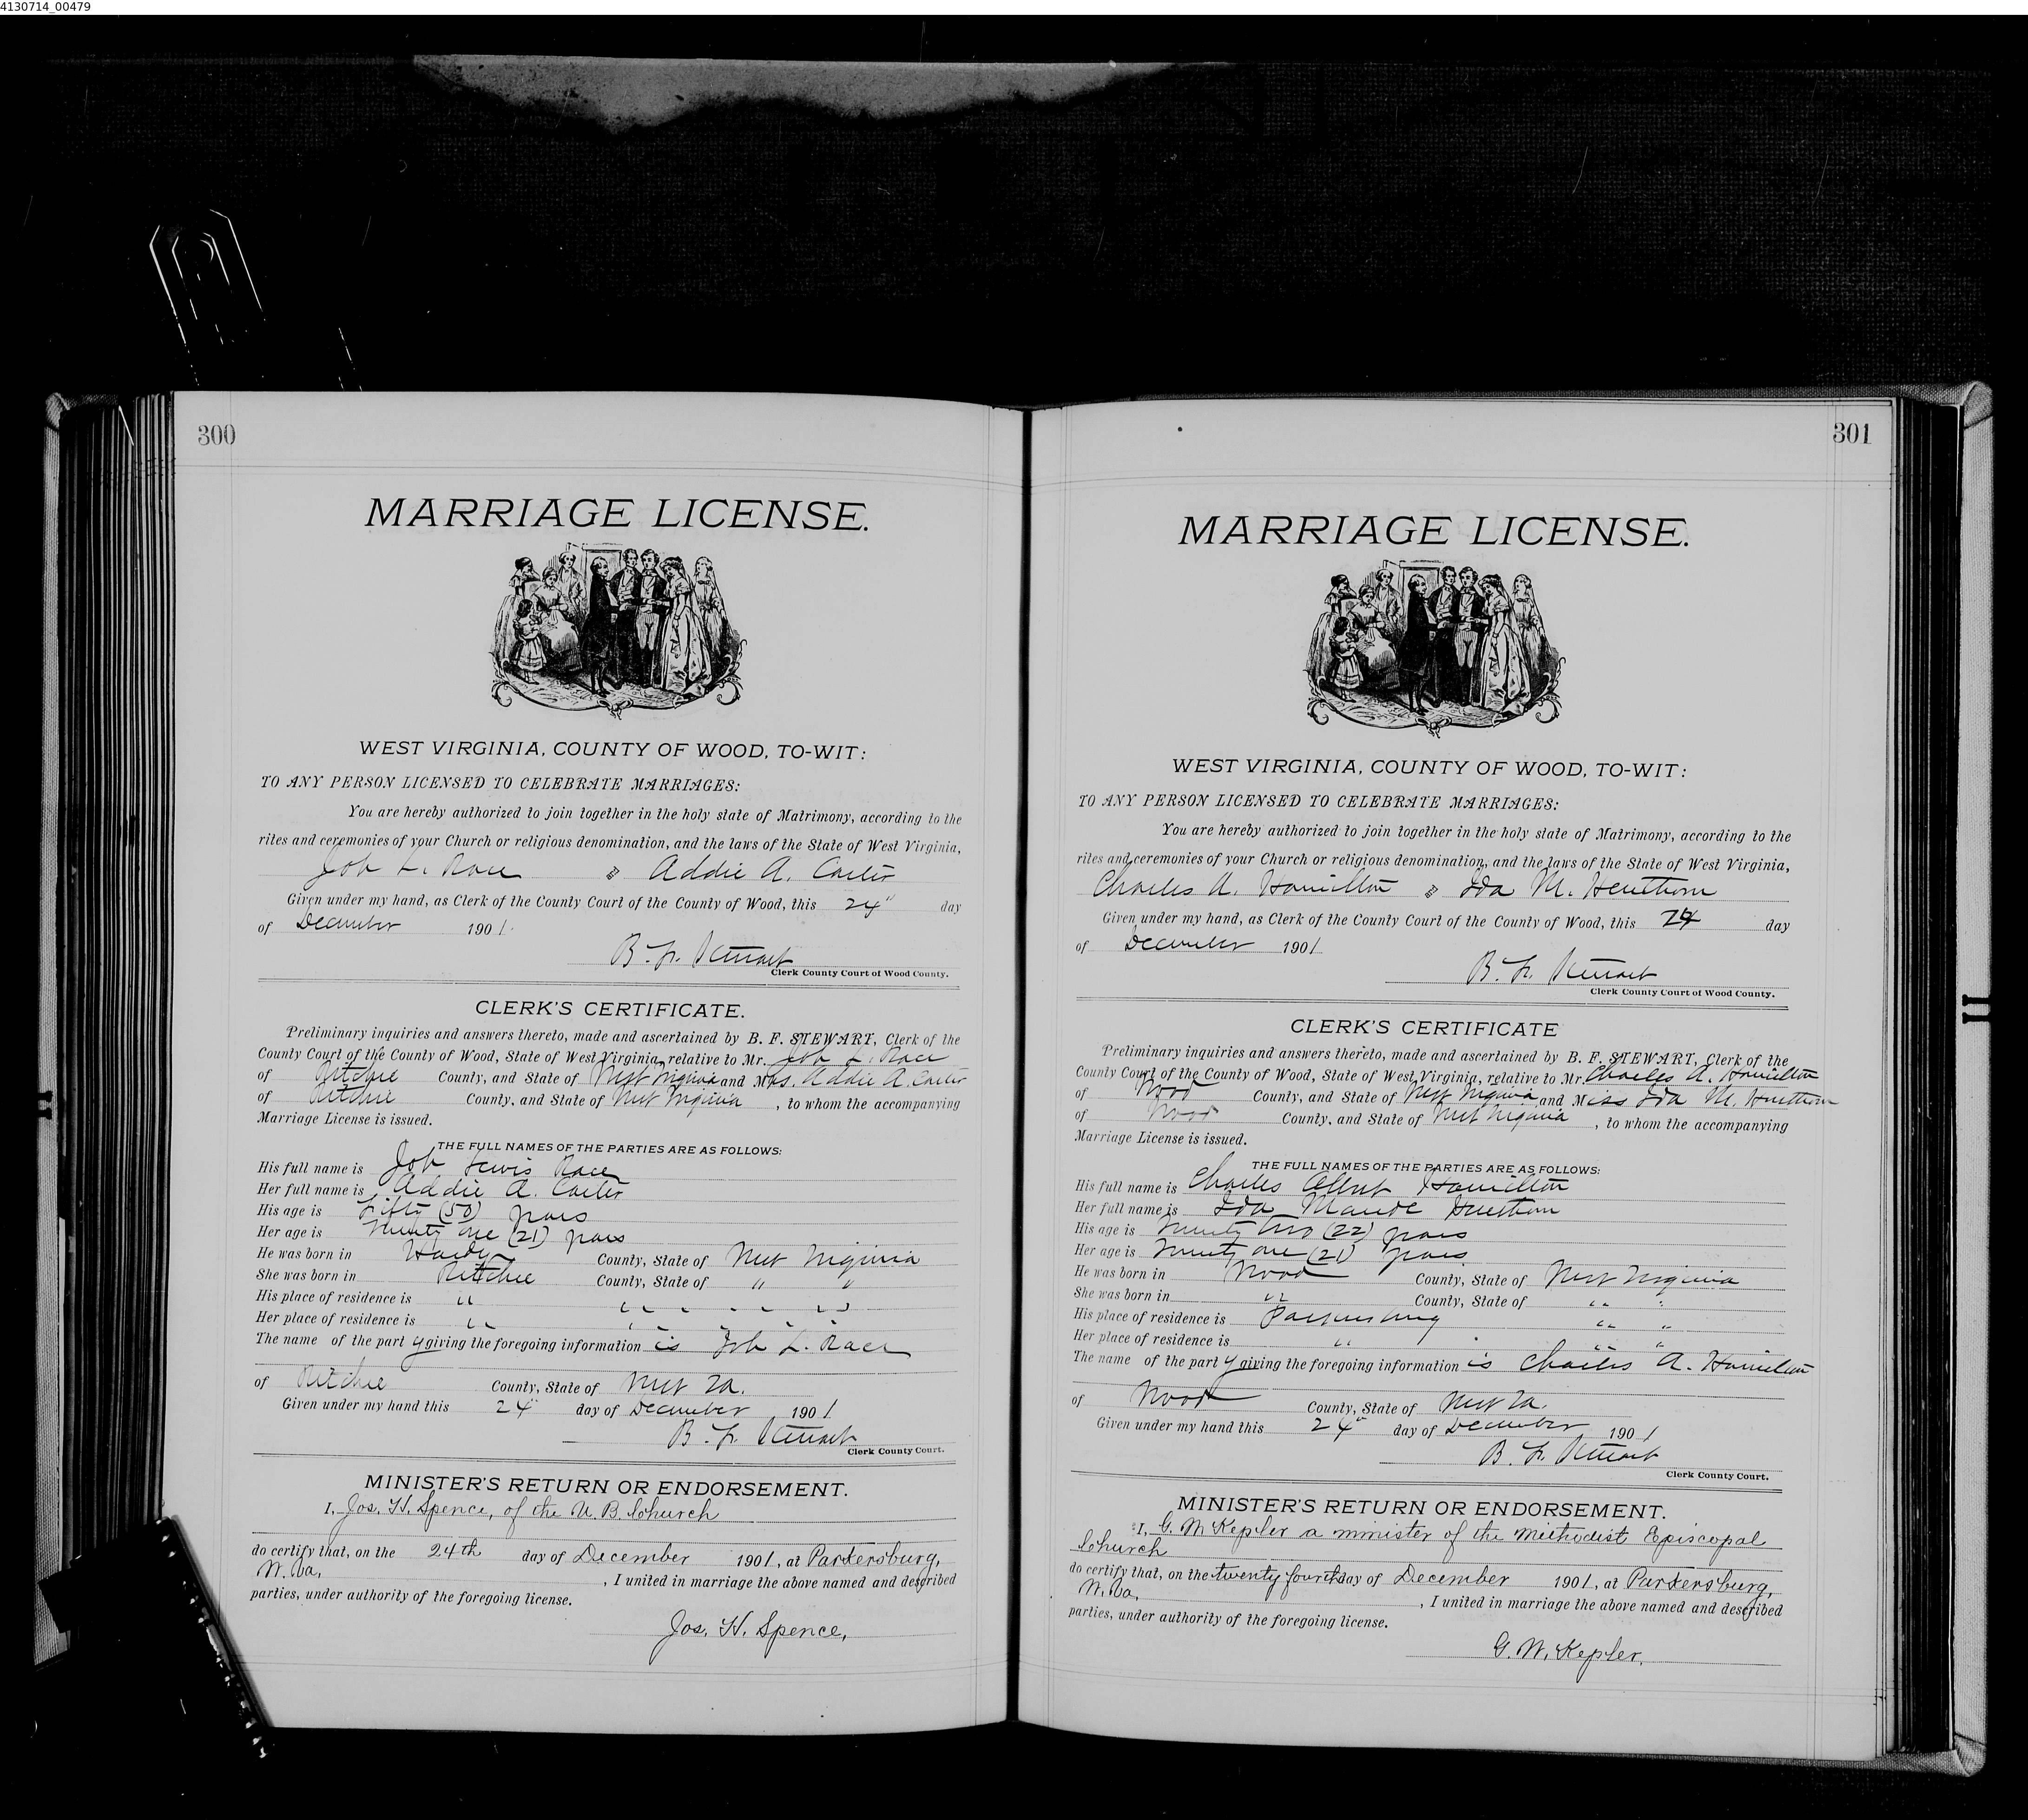 4130714_00479
300
MARRIAGE LICENSE.
WEST VIRGINIA, COUNTY OF WOOD, TO-WIT:
TO ANY PERSON LICENSED TO CELEBRATE MARRIAGES:
You are hereby authorized to join together in the holy state of Matrimony, according to the
rites and ceremonies of your Church or religious denomination, and the laws of the State of West Virginia,
Job L. Race & Addie A. Carter
Given under my hand, as Clerk of the County Court of the County of Wood, this 24" day
of December 1901.
B. F. Stewart
Clerk County Court of Wood County.
CLERK'S CERTIFICATE.
Preliminary inquiries and answers thereto, made and ascertained by B. F. STEWART, Clerk of the
County Court of the County of Wood, State of West Virginia, relative to Mr. Job L. Race
of Ritchie County, and State of West Virginia and Mrs. Addie A. Carter
of Ritchie County, and State of West Virginia, to whom the accompanying
Marriage License is issued.
THE FULL NAMES OF THE PARTIES ARE AS FOLLOWS:
His full name is Job Lewis Race
Her full name is Addie A. Carter
His age is Fifty (50) years
Her age is Twenty one (21) years
He was born in Hardy County, State of West Virginia
She was born in Ritchie County, State of " "
His place of residence is " " " " "
Her place of residence is " " " " "
The name of the party giving the foregoing information is Job L. Race
of Ritchie County, State of West Va.
Given under my hand this 24" day of December 1901
B. F. Stewart
Clerk County Court.
MINISTER'S RETURN OR ENDORSEMENT.
I, Jos. H. Spence, of the U. B. Church
do certify that, on the 24th day of December 1901, at Parkersburg,
W. Va. , I united in marriage the above named and described
parties, under authority of the foregoing license.
Jos. H. Spence,
301
MARRIAGE LICENSE.
WEST VIRGINIA, COUNTY OF WOOD, TO-WIT:
TO ANY PERSON LICENSED TO CELEBRATE MARRIAGES:
You are hereby authorized to join together in the holy state of Matrimony, according to the
rites and ceremonies of your Church or religious denomination, and the laws of the State of West Virginia,
Charles A. Hamilton & Ida M. Henthorn
Given under my hand, as Clerk of the County Court of the County of Wood, this 24 day
of December 1901.
B. F. Stewart
Clerk County Court of Wood County.
CLERK'S CERTIFICATE
Preliminary inquiries and answers thereto, made and ascertained by B. F. STEWART, Clerk of the
County Court of the County of Wood, State of West Virginia, relative to Mr. Charles A. Hamilton
of Wood County, and State of West Virginia and Miss Ida M. Henthorn
of Wood County, and State of West Virginia, to whom the accompanying
Marriage License is issued.
THE FULL NAMES OF THE PARTIES ARE AS FOLLOWS:
His full name is Charles Albert Hamilton
Her full name is Ida Maude Henthorn
His age is Twenty two (22) years
Her age is Twenty one (21) years
He was born in Wood County, State of West Virginia
She was born in " County, State of " "
His place of residence is Parkersburg " "
Her place of residence is " " "
The name of the party giving the foregoing information is Charles A. Hamilton
of Wood County, State of West Va.
Given under my hand this 24" day of December 1901
B. F. Stewart
Clerk County Court.
MINISTER'S RETURN OR ENDORSEMENT.
I, G. W. Kepler a minister of the Methodist Episcopal
Church
do certify that, on the twenty fourth day of December 1901, at Parkersburg,
W. Va. , I united in marriage the above named and described
parties, under authority of the foregoing license.
G. W. Kepler.